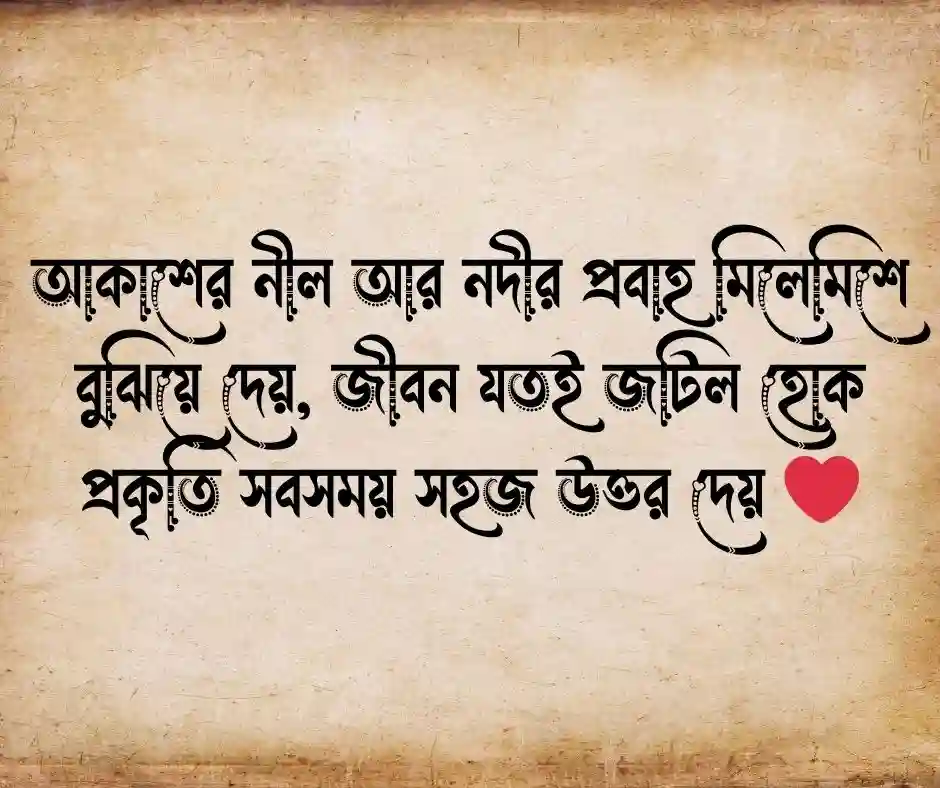 আকাশের নীল আর নদীর প্রবাহ মিলেমিশে
বুঝিয়ে দেয়, জীবন যতই জটিল হোক
প্রকৃতি সবসময় সহজ উত্তর দেয় ❤️